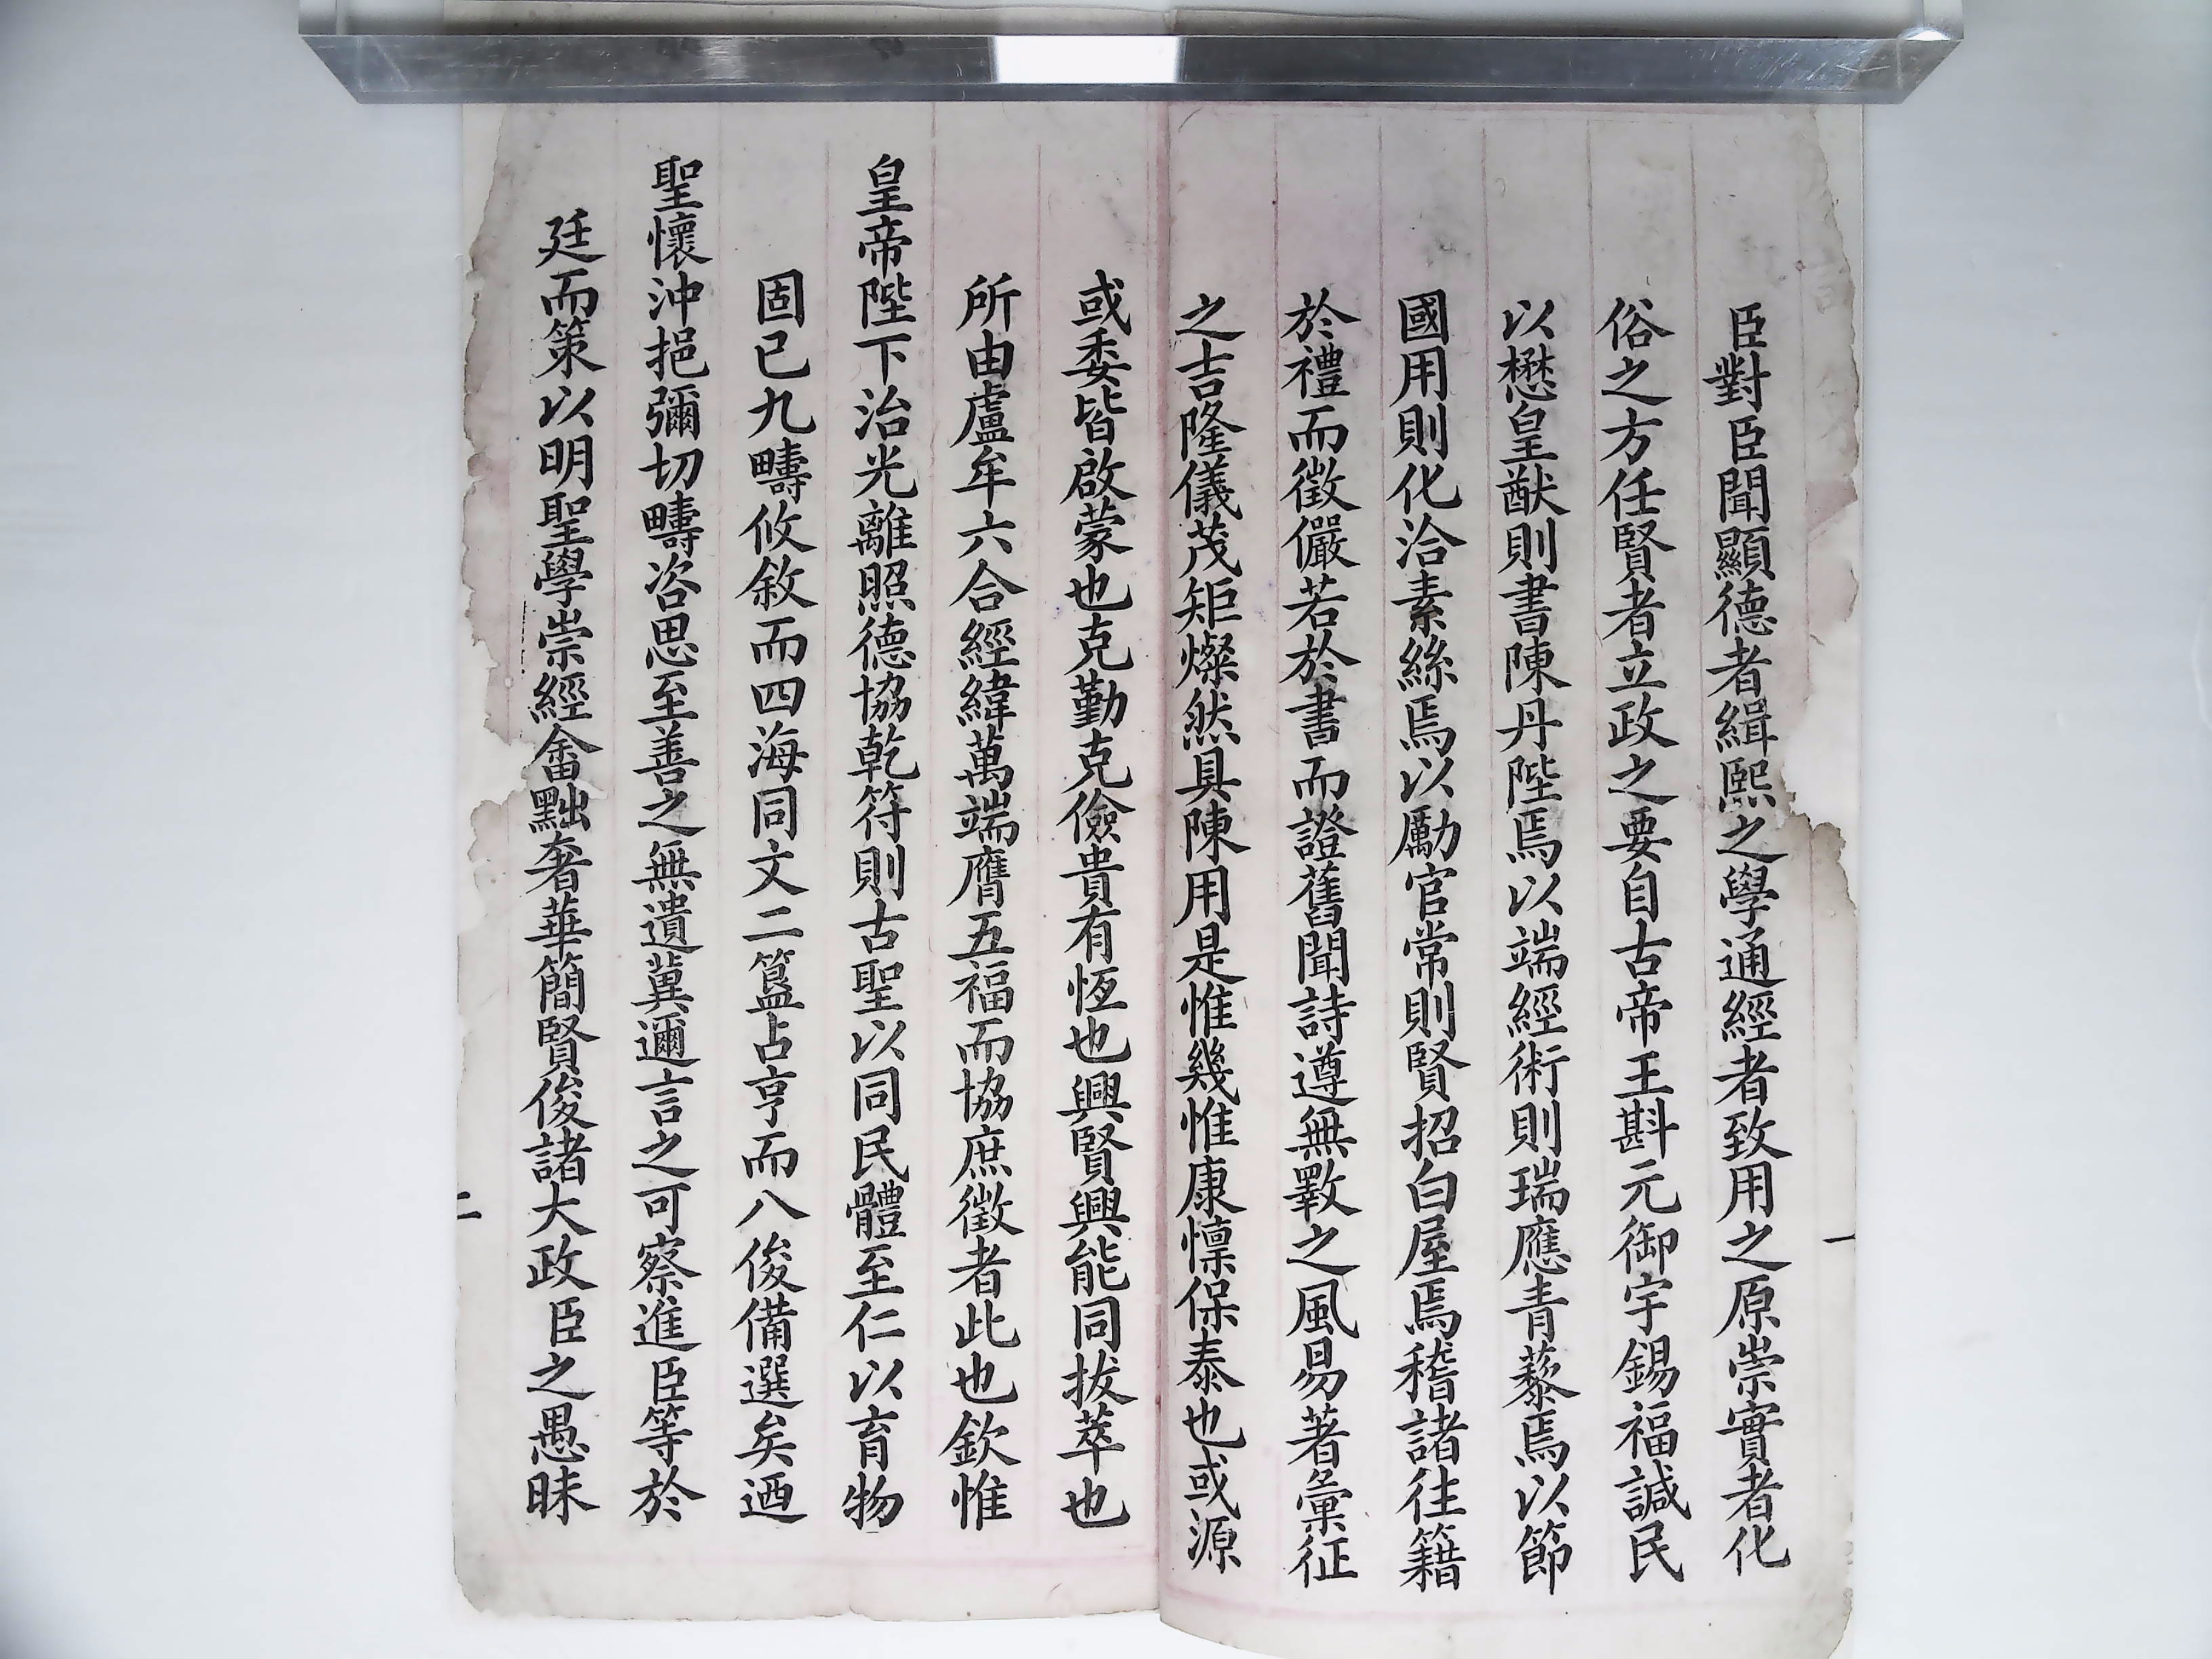 臣對臣聞顯德者緝熙之學通經者致用之原崇實者化
俗之方任賢者立政之要自古帝王斟元御宇錫福諴民
以懋皇猷則書陳丹陛焉以端經術則瑞應青藜焉以節
國用則化洽素絲焉以勵官常則賢招白屋焉稽諸往籍
於禮而徵儼若於書而證舊聞詩遵無斁之風易著彙征
之吉隆儀茂矩燦然具陳用是惟幾惟康懍保泰也或源
或委皆啟蒙也克勤克儉貴有恆也興賢興能同拔萃也
所由盧牟六合經緯萬端膺五福而協庶徵者此也欽惟
皇帝陛下治光離照德協乾符則古聖以同民體至仁以育物
固已九疇攸敘而四海同文二簋占亨而八俊備選矣迺
聖懷沖挹彌切疇咨思至善之無遺冀邇言之可察進臣等於
廷而策以明聖學崇經畬黜奢華簡賢俊諸大政臣之愚昧
一
二